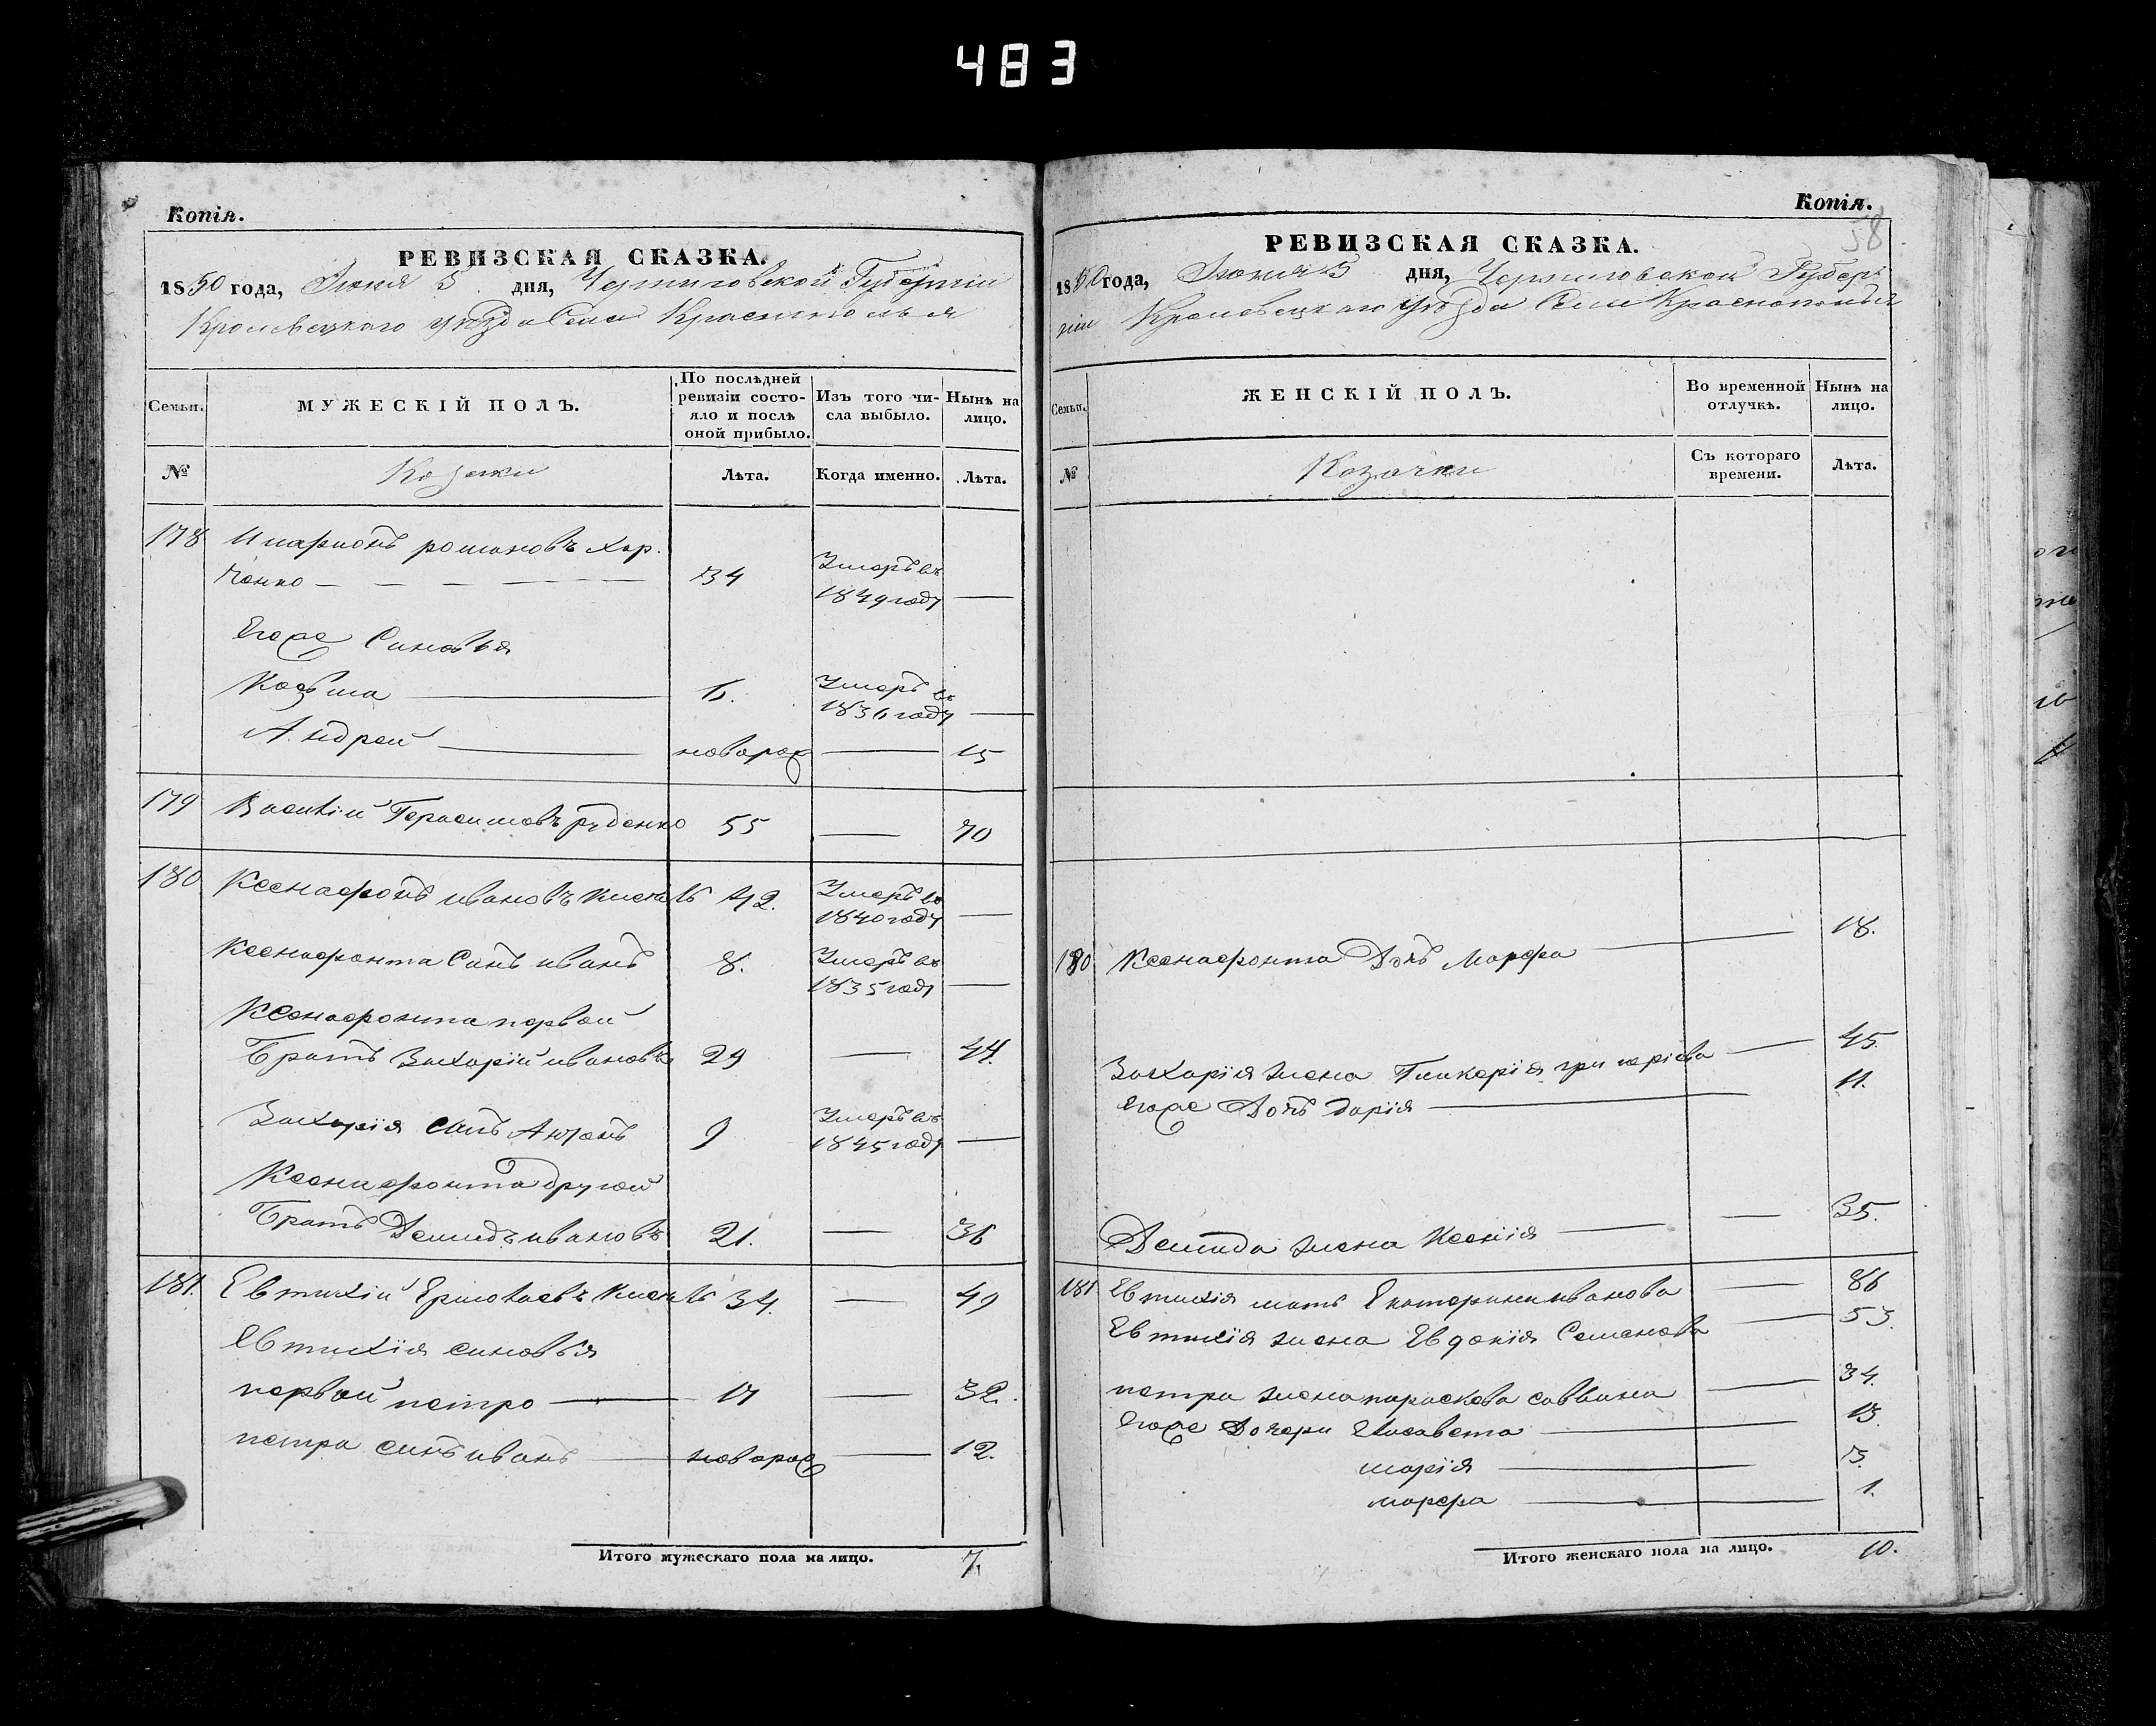 483
Копія.
РЕВИЗСКАЯ СКАЗКА.
1850 года, Июня 5 дня, Черниговской Губерніи
Кролевецкаго уѣзда Села Краснополья
Семьи.
МУЖЕСКІЙ ПОЛЪ.
По послѣдней
ревизіи состо-
яло и послѣ
оной прибыло.
Изъ того чи-
сла выбыло.
Нынѣ на
лицо.
№
Козаки
Лѣта.
Когда именно.
Лѣта.
178 Иларионъ романовъ Хар.
ченко — 34 Умеръ въ
1849 году —
Егоже Синовья
Козьма — 6. Умеръ въ
1836 году —
Андрей — новорож — 15
179 Василій Герасимовъ руденко 55 — 70
180 Ксенафонъ ивановъ Кисель 42. Умеръ въ
1840 году —
Ксенафонта Синъ иванъ 8. Умеръ въ
1835 году —
Ксенафонта первой
Братъ Захарій ивановъ 29 — 44.
Захарія синъ Антонъ 9 Умеръ въ
1845 году —
Ксенафонта другой
Братъ Демидъ ивановъ 21. — 36
181. Евтихій Ермолаевъ Кисель 34. — 49
Евтихія синовья
первой петро — 17 — 32.
петра синъ иванъ — новорож — 12.
Итого мужескаго пола на лицо. 7.
Копія.
58
РЕВИЗСКАЯ СКАЗКА.
1850 года, Июня 5 дня, Черниговской Губер
ніи Кролевецкаго уѣзда Села Краснополья
Семьи.
ЖЕНСКІЙ ПОЛЪ.
Во временной
отлучкѣ.
Нынѣ на
лицо.
№
Козачки
Съ котораго
времени.
Лѣта.
180 Ксенафонта Дочь Марфа — 18.
Захарія жена Гликерія григоріева — 45.
Егоже Дочь дарія — 11.
Демида жена Ксенія — 35.
181 Евтихія мать Екатерина иванова — 86
Евтихія жена Евдокія Семенова — 53.
петра жена параскева саввина — 34.
Егоже Дочери Елисавета — 13.
марія — 3.
марфа — 1.
Итого женскаго пола на лицо. 10.